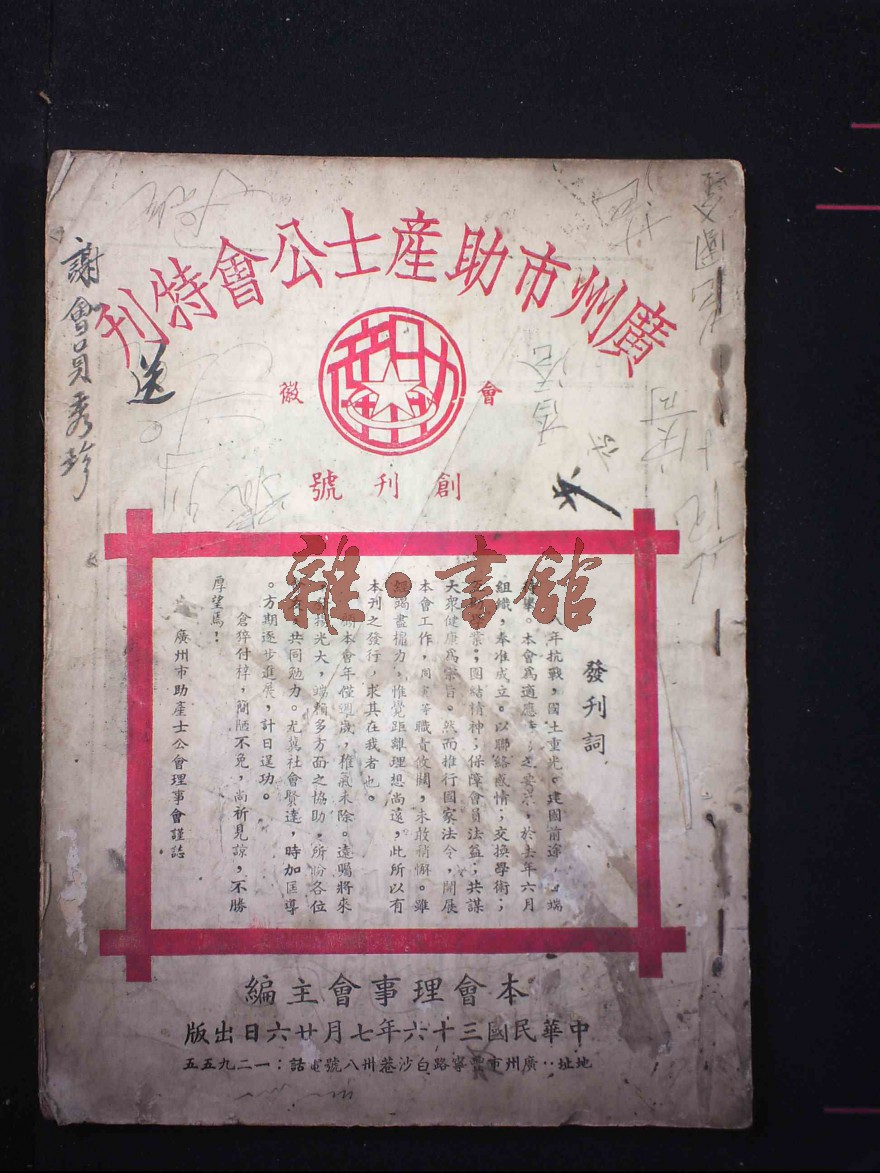 廣州市助產士公會特刊
會徽
創刊號
謝會員秀珍
送
雜·書館
發刊詞
年抗戰,國土重光。建國前途,
。本會爲適應 ,於去年六月
組織,奉准成立。以聯絡感情;交換學術;
業;團結精神;保障會員法益;共謀
大衆健康爲宗旨。然而推行國家法令,開展
本會工作,同寅等職責攸關,未敢稍懈。雖
經竭盡棉力,惟覺距離理想尚遠,此所以有
本刊之發行,求其在我者也。
本會年僅週歲,稚氣未除。遠矚將來
光大,端賴多方面之協助,所盼各位
共同勉力。尤冀社會賢達,時加匡導
。方期逐步進展,計日逞功。
倉猝付梓,簡陋不免,尚祈見諒,不勝
厚望焉!
廣州市助產士公會理事會謹誌
本會理事會主編
中華民國三十六年七月廿六日出版
地址:廣州市豐寧路白沙巷卅八號電話:一二九五五